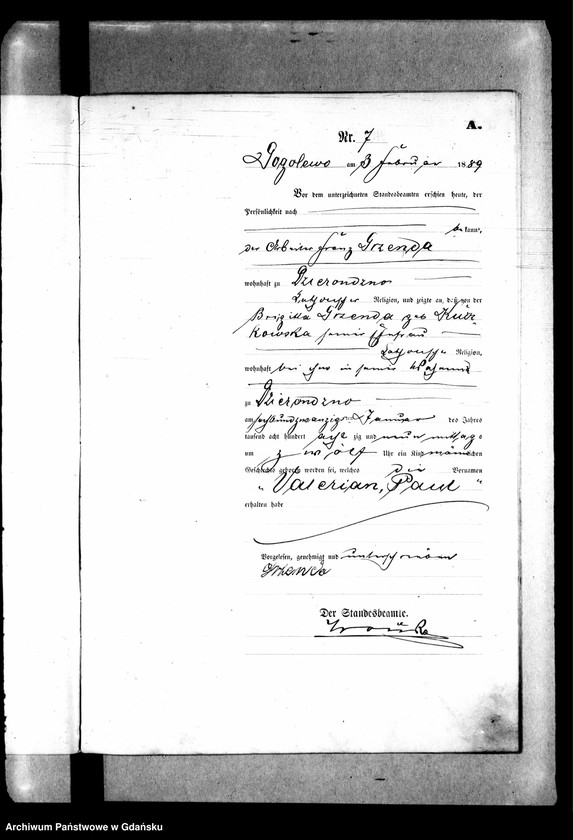 A.
Nr. 7
Gogolewo am 3 Februar 1889
Vor dem unterzeichneten Standesbeamten erschien heute, der
Persönlichkeit nach
be kannt,
der Arbeiter Franz Grzenda
wohnhaft zu Dzierondzno
katholischer Religion, und zeigte an, daß von der
Brigitta Grzenda geb
kowska seiner Ehefrau
katholischer Religion,
wohnhaft bei ihm in seiner Wohnung
zu Dzierondzno
am sechsundzwanzigsten Januar des Jahres
tausend acht hundert acht zig und neun mittags
um zwölf Uhr ein Kind männlichen
Geschlechts geboren worden sei, welches die Vornamen
„ Valerian, Paul "
erhalten habe
Vorgelesen, genehmigt und unterschrieben
Grzenda
Der Standesbeamte.
Archiwum Państwowe w Gdańsku